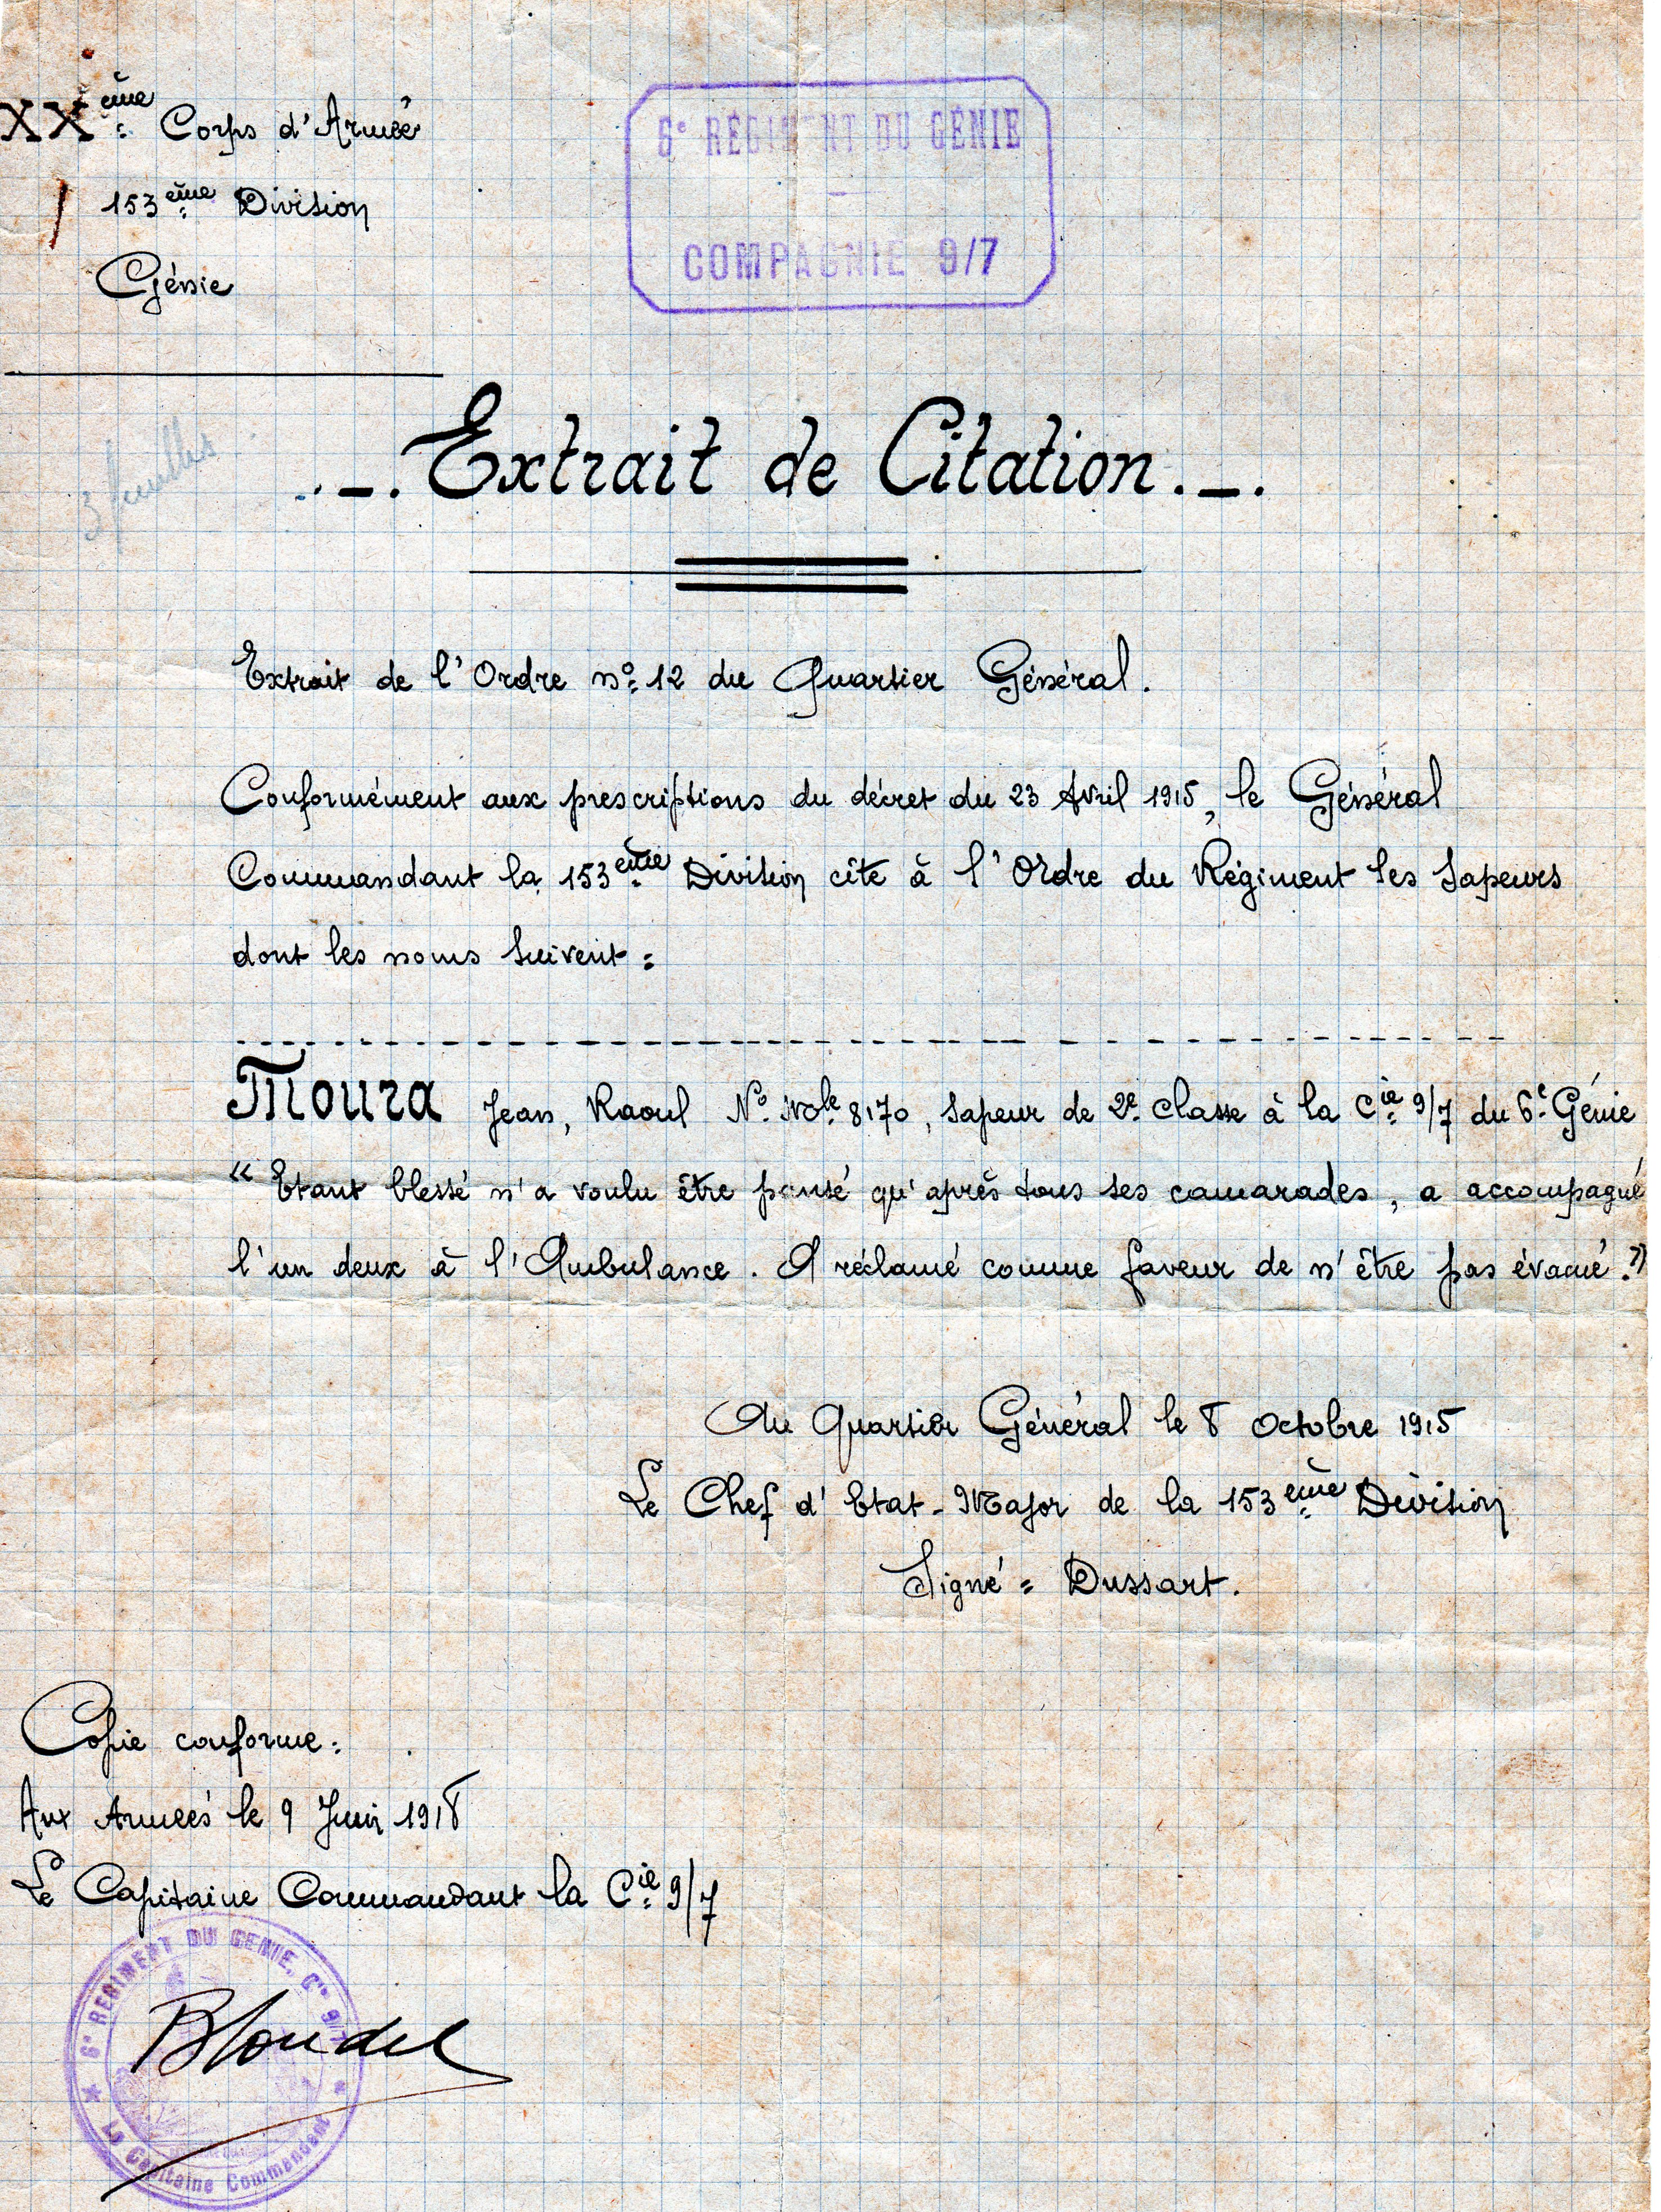 XXème Corps d'Armée
153ème Division
Génie
6e RÉGIMENT DU GÉNIE
COMPAGNIE 9/7
3 feuilles
Extrait de Citation
Extrait de l'Ordre no 12 du Quartier Général.
Conformément aux prescriptions du décret du 23 Avril 1915, le Général
Commandant la 153ème Division cite à l'Ordre du Régiment les Sapeurs
dont les noms suivent :
Moura Jean, Raoul No Mole 8170, Sapeur de 2e classe à la Cie 9/7 du 6e Génie
" Etant blessé n'a voulu être pansé qu'après tous ses camarades, a accompagné
l'un deux à l'Ambulance. A réclamé comme faveur de n'être pas évacué. "
Au Quartier Général le 8 Octobre 1915
Le Chef d'Etat-Major de la 153ème Division
Signé : Dussart.
Copie conforme :
Aux Armées le 9 Juin 1918
Le Capitaine Commandant la Cie 9/7
6e REGIMENT DU GENIE, Cie 9/7
Blondel
Le Capitaine Commandant